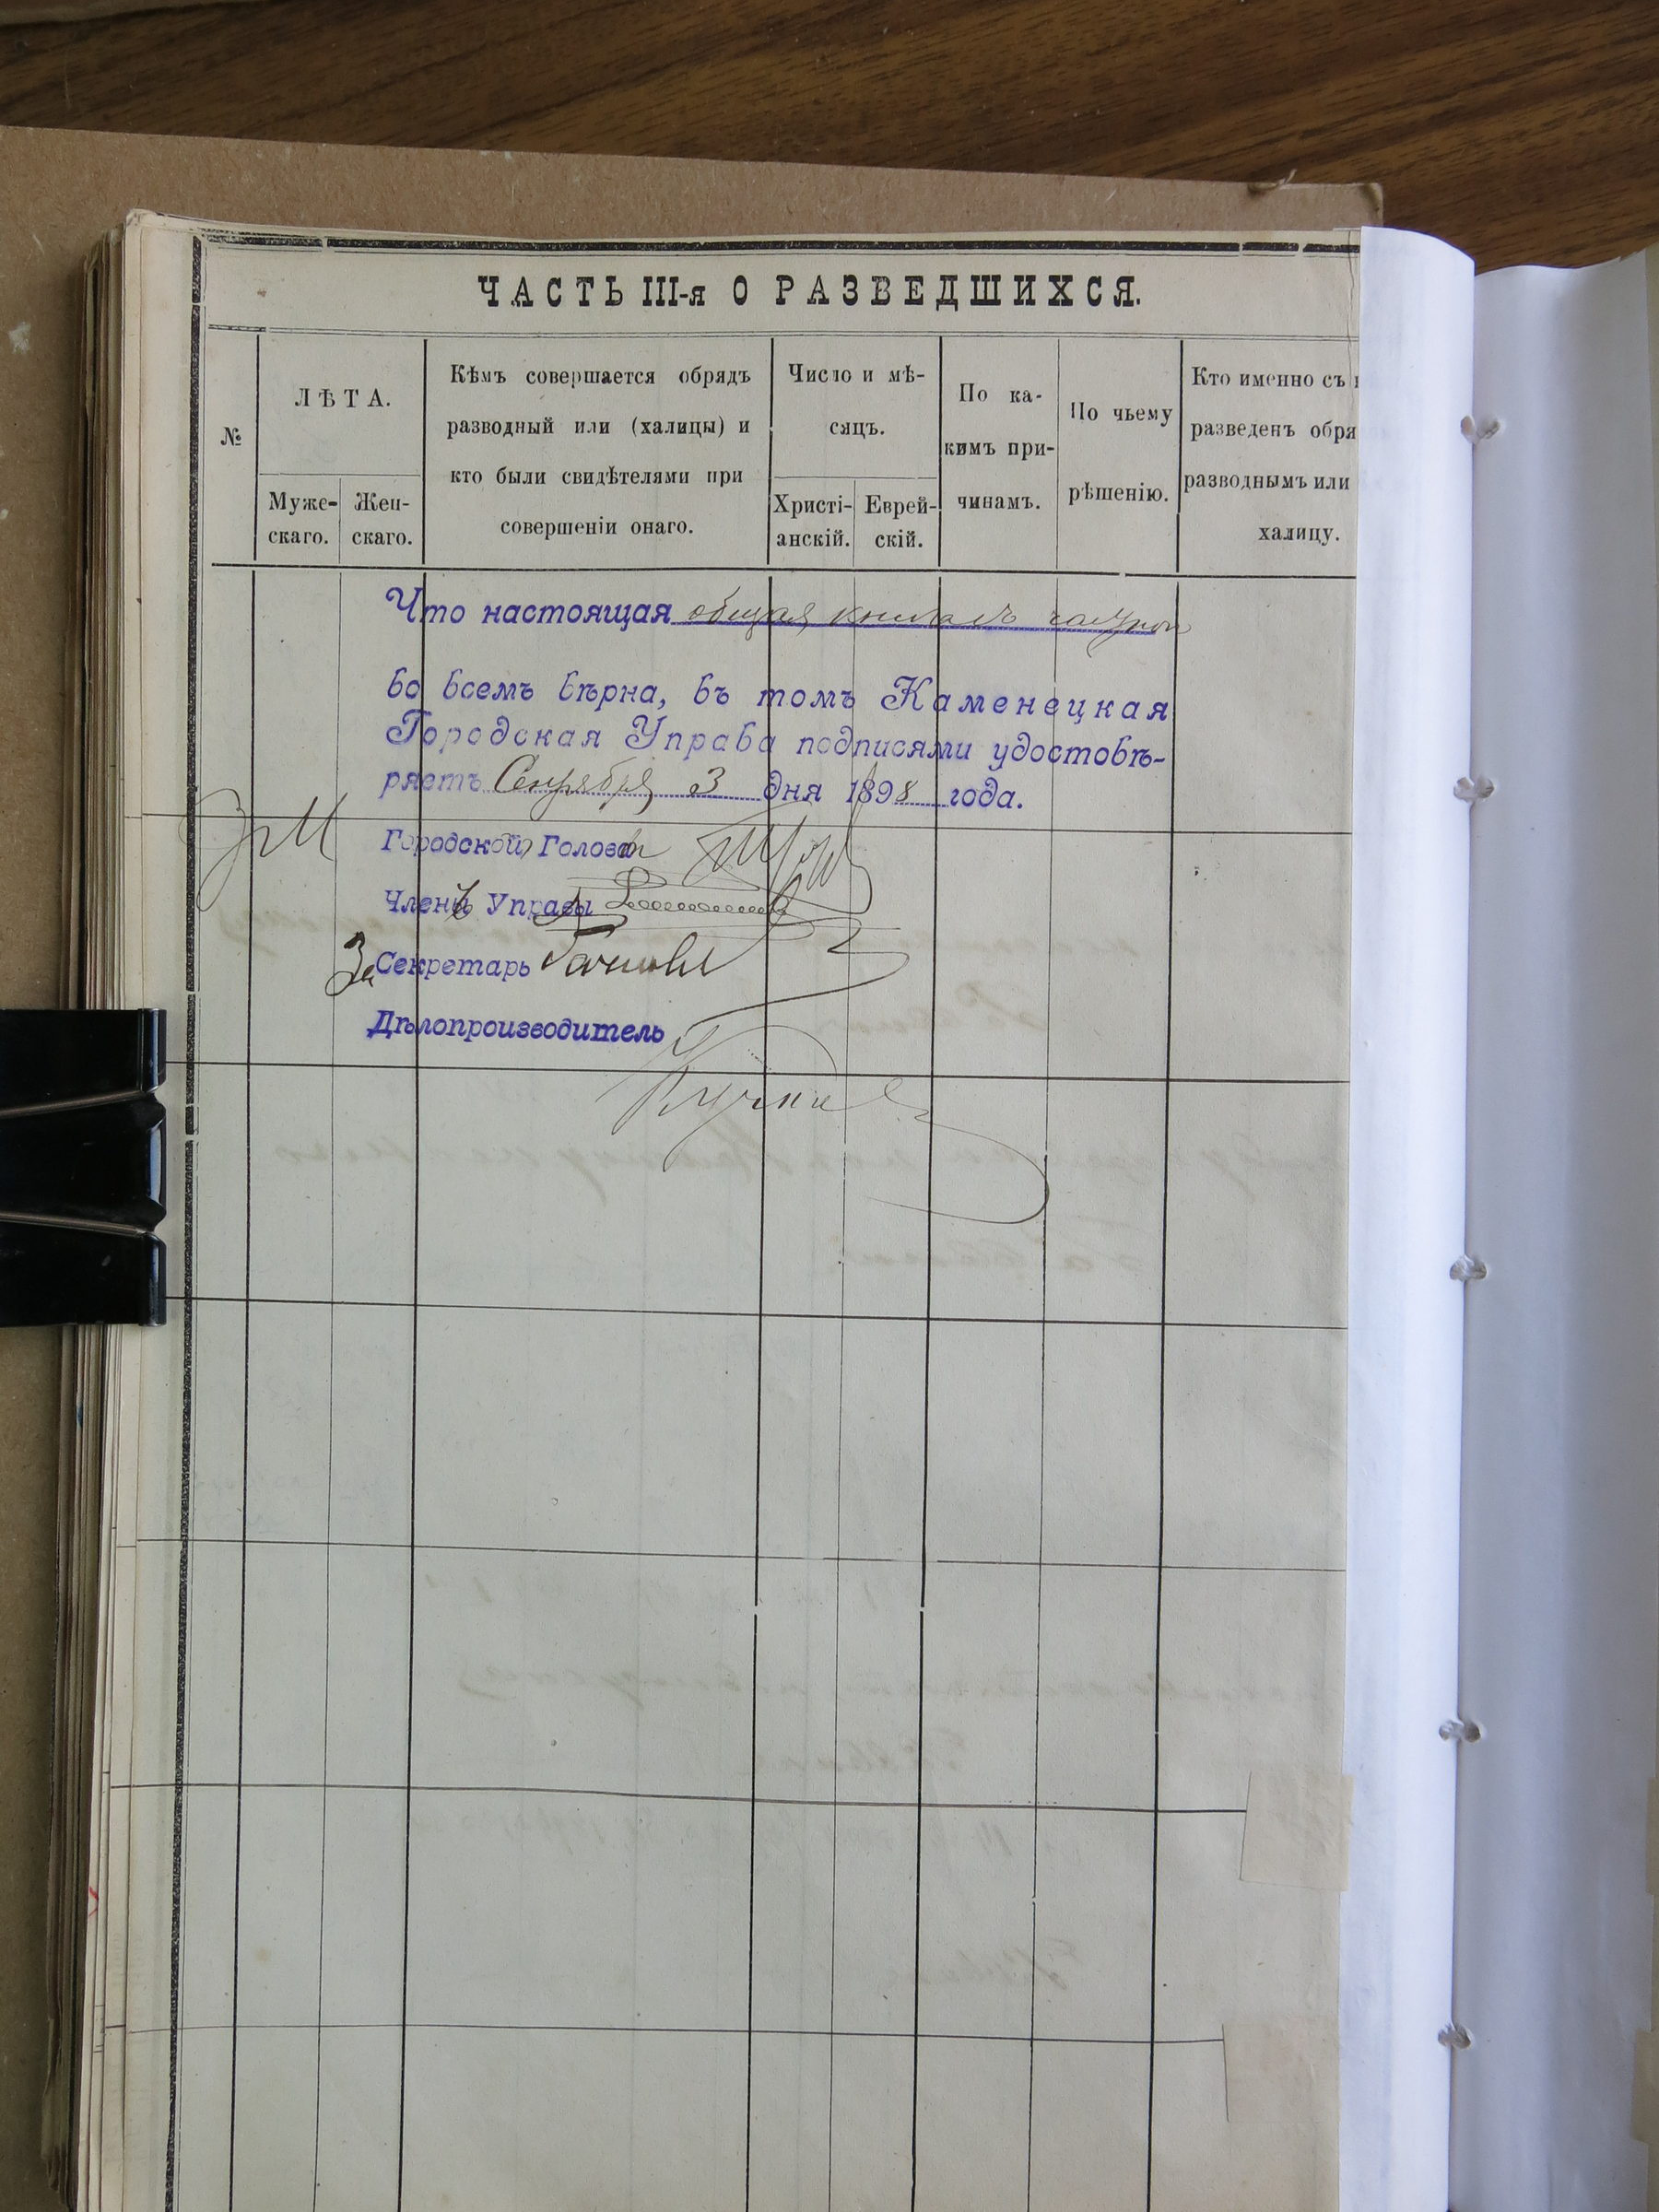 ЧАСТЬ III-я О РАЗВЕДШИХСЯ.
№
ЛѢТА.
Муже-
скаго.
Жен-
скаго.
Кѣмъ совершается обрядъ
разводный или (халицы) и
кто были свидѣтелями при
совершеніи онаго.
Число и мѣ-
сяцъ.
Христі-
анскій.
Еврей-
скій.
По ка-
кимъ при-
чинамъ.
По чьему
рѣшенію.
Кто именно съ
разведенъ обря
разводнымъ или
халицу.
Что настоящая общая книга съ
во всемъ вѣрна, въ томъ Каменецкая
Городская Управа подписями удостовѣ-
ряетъ Сентября 3 дня 1898 года.
Городской Голова
Членъ Управы
За Секретарь
Дѣлопроизводитель